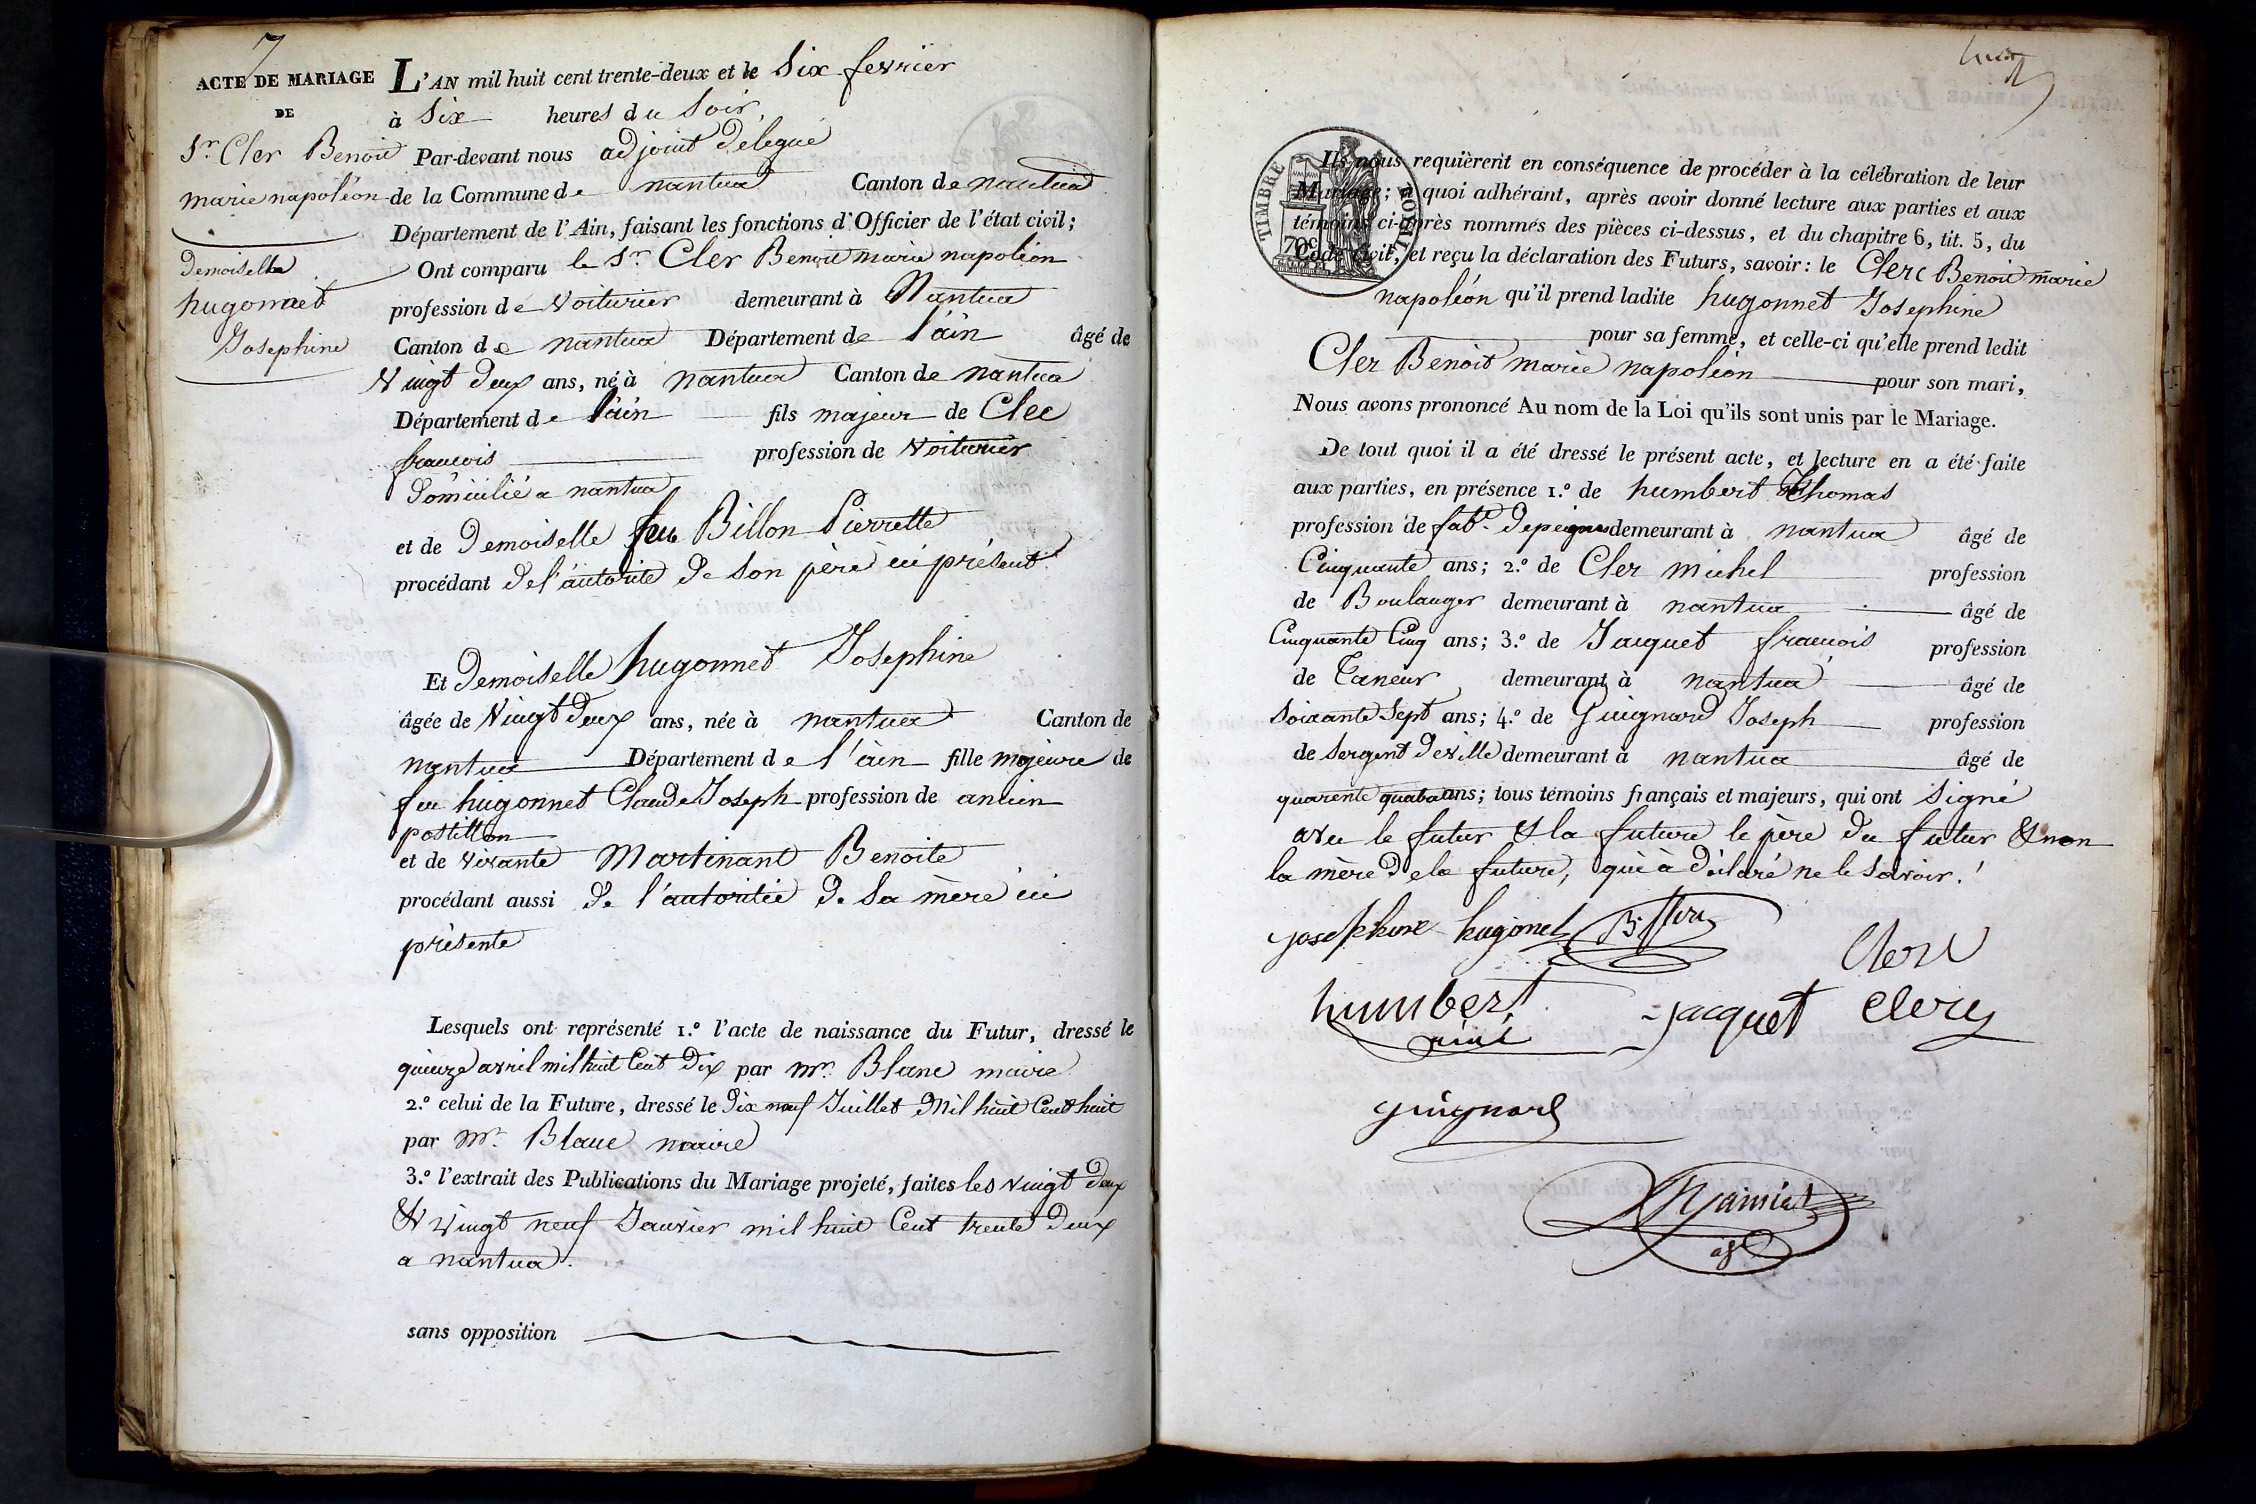 7
ACTE DE MARIAGE
DE
Sr. Cler Benoit
marie napoléon
Demoiselle
hugonnet
Josephine
L'AN mil huit cent trente-deux et le Six fevrier
à Six heures du Soir
Par-devant nous adjoint délegué
de la Commune de nantua Canton de nantua
Département de l'Ain, faisant les fonctions d'Officier de l'état civil;
Ont comparu le Sr. Cler Benoit marie napoléon
profession de Voiturier demeurant à Nantua
Canton de nantua Département de l'ain âgé de
Vingt deux ans, né à nantua Canton de nantua
Département de l'ain fils majeur de Clec
francois profession de Voiturier
Domicilié a nantua
et de Demoiselle feu Billon Pierrette
procédant de l'autorité de son père ici présent
Et Demoiselle hugonnet Josephine
âgée de Vingt deux ans, née à nantua Canton de
nantua Département de l'ain fille majeure de
feu hugonnet Claude Joseph profession de ancien
postillon
et de vivante Martinand Benoite
procédant aussi de l'autoritée de Sa mère ici
présente
Lesquels ont représenté 1.º l'acte de naissance du Futur, dressé le
quinze avril mil huit Cent Dix par Mr. Blanc maire
2.º celui de la Future, dressé le Dix neuf Juillet Mil huit Cent huit
par Mr. Blanc maire
3.º l'extrait des Publications du Mariage projeté, faites les vingt Deux
& vingt neuf Janvier mil huit Cent trente Deux
a nantua.
sans opposition
TIMBRE ROYAL
70c
Ils nous requièrent en conséquence de procéder à la célébration de leur
Mariage; à quoi adhérant, après avoir donné lecture aux parties et aux
témoins ci-après nommés des pièces ci-dessus, et du chapitre 6, tit. 5, du
Code Civil, et reçu la déclaration des Futurs, savoir: le Clerc Benoit marie
napoléon qu'il prend ladite hugonnet Josephine
pour sa femme, et celle-ci qu'elle prend ledit
Cler Benoit marie napoléon pour son mari,
Nous avons prononcé Au nom de la Loi qu'ils sont unis par le Mariage.
De tout quoi il a été dressé le présent acte, et lecture en a été faite
aux parties, en présence 1.º de humbert Thomas
profession de fabt. De peignes demeurant à nantua âgé de
Cinquante ans; 2.º de Cler michel profession
de Boulanger demeurant à nantua âgé de
Cinquante Cinq ans; 3.º de Jacquet francois profession
de Taneur demeurant à nantua âgé de
Soixante Sept ans; 4.º de Guignard Joseph profession
de Sergent de ville demeurant à nantua âgé de
quarente quatre ans; tous témoins français et majeurs, qui ont Signé
avec le futur & la future le père du futur & non
la mère de la future, qui à déclaré ne le Savoir.
josephine hugonet
Clerc
humbert
ainé
jacquet
clerc
guignard